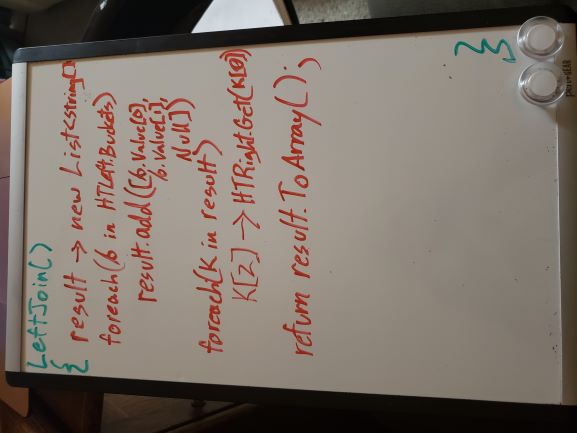 LeftJoin()
{
result → new List<string[]
foreach(b in HTLeft.Buckets)
result.add([b.Value[0],
b.Value[1],
Null])
foreach(K in result)
K[2] → HTRight.Get(K[0])
return result.ToArray();
}